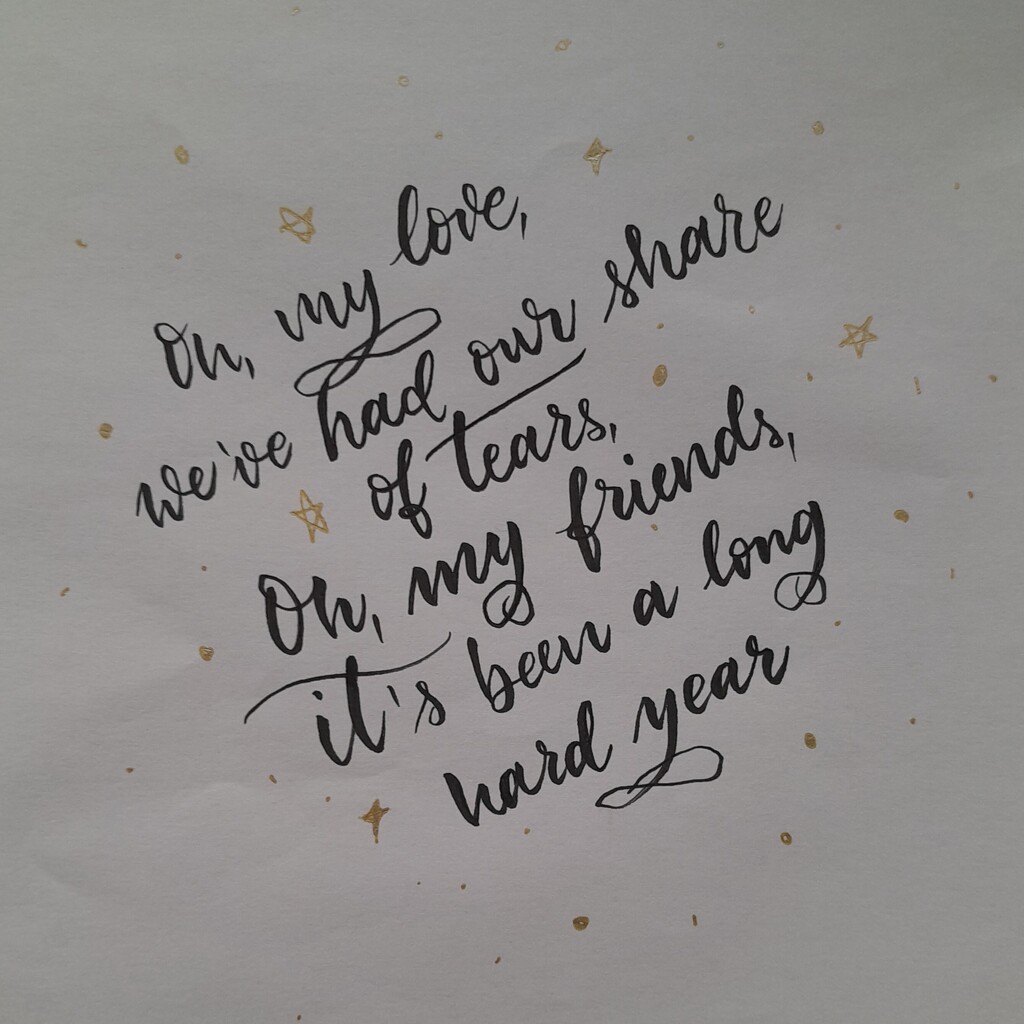 Oh, my love,
we've had our share
of tears,
Oh, my friends,
it's been a long
hard year